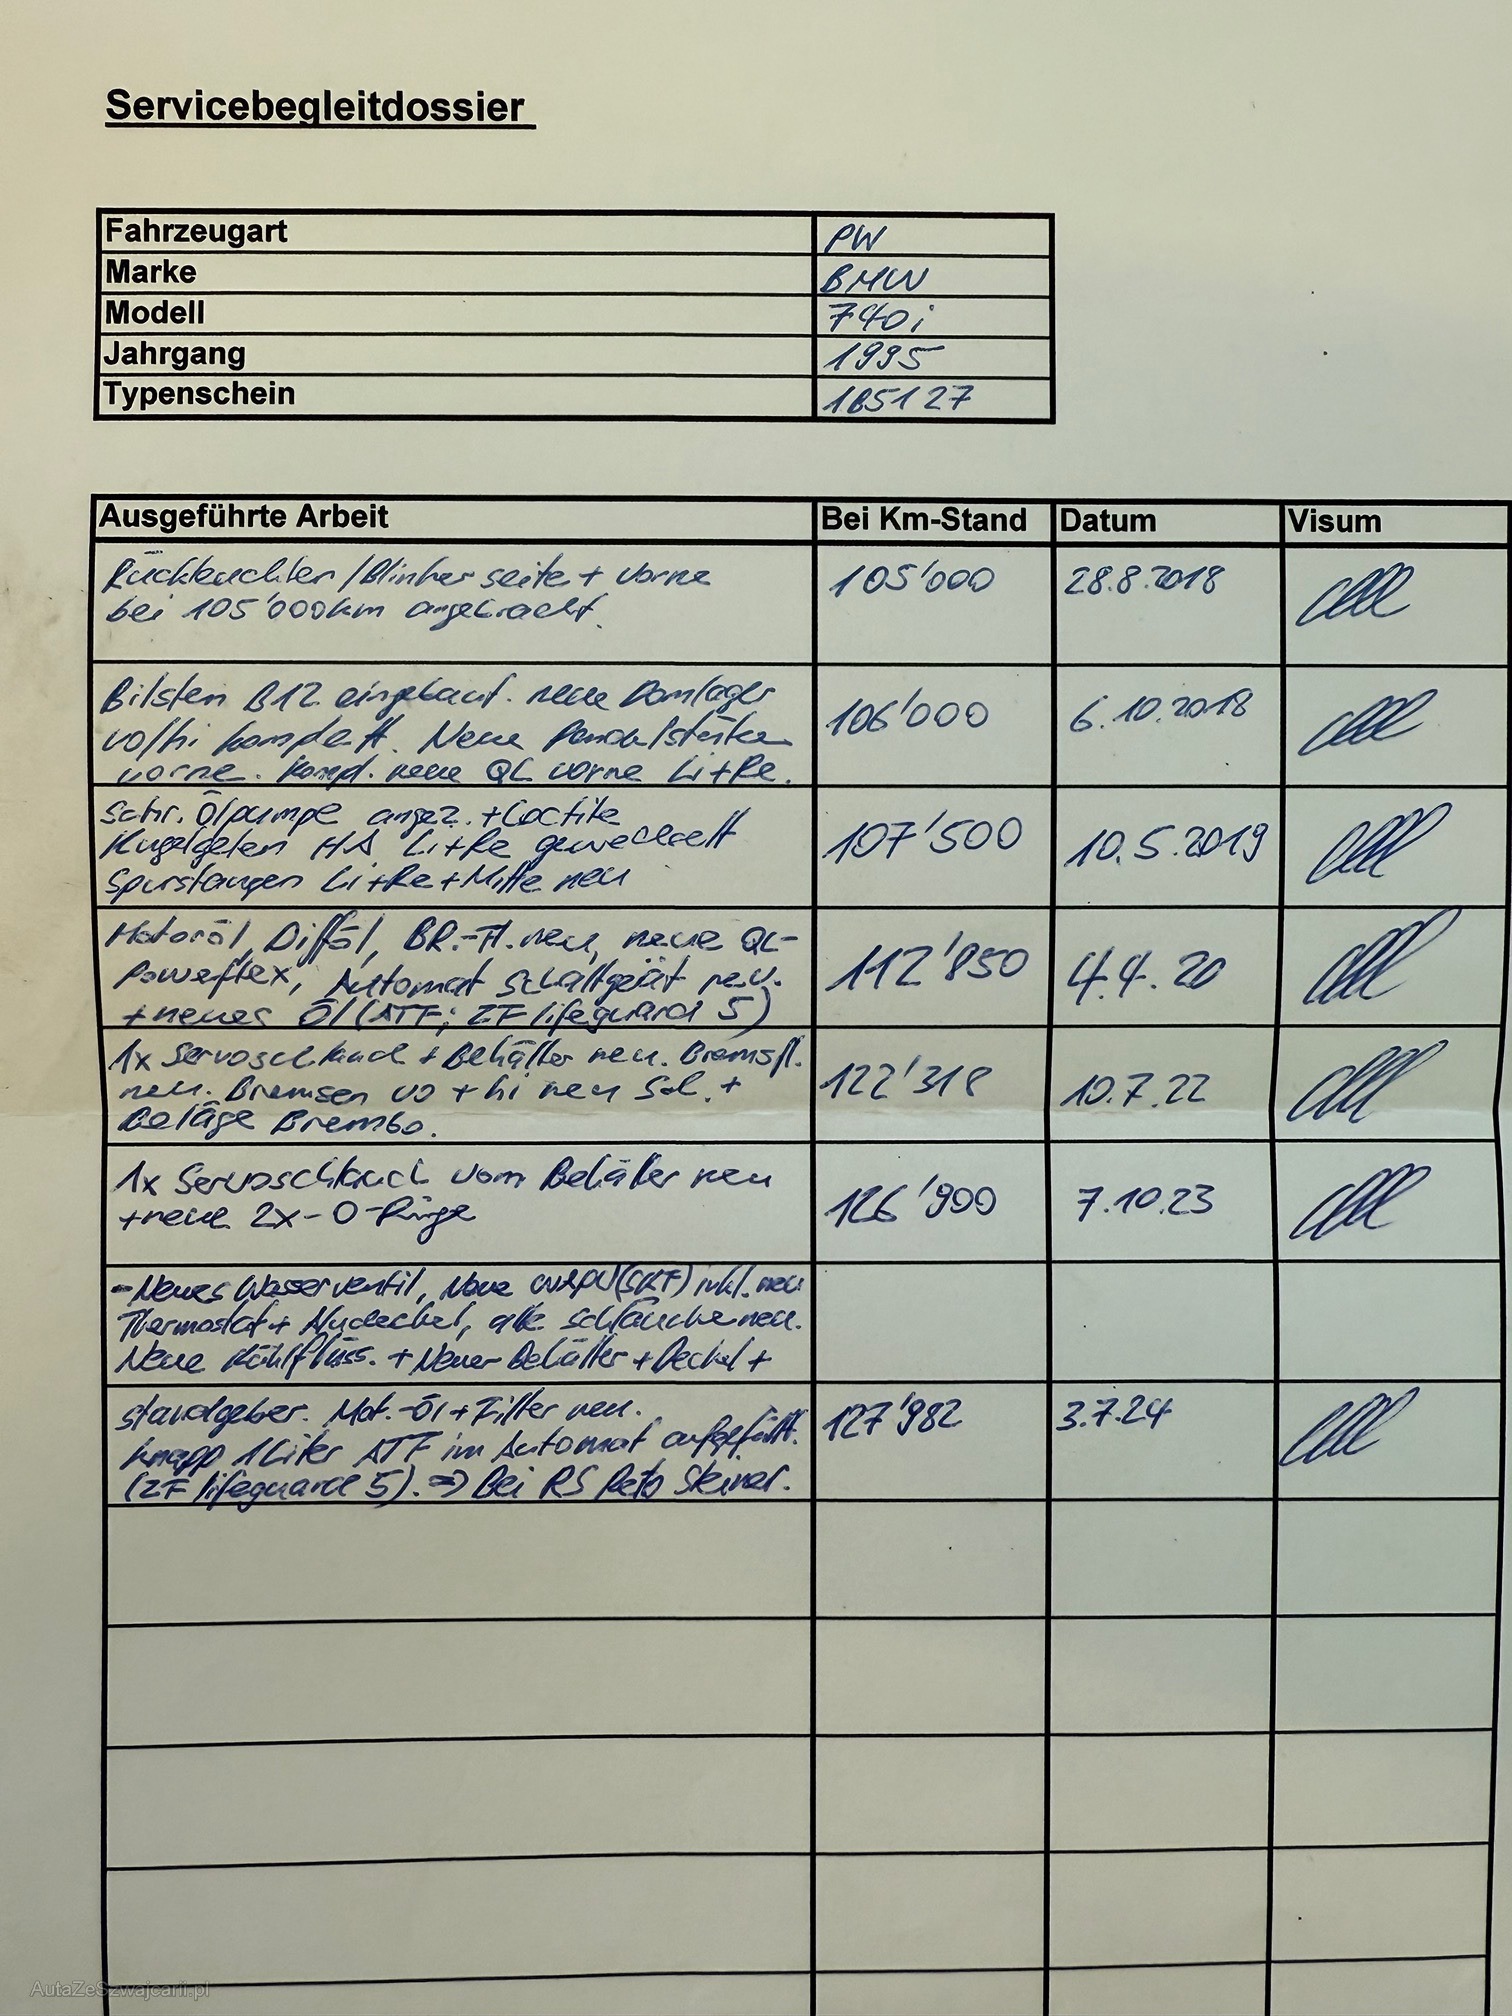 Servicebegleitdossier
Fahrzeugart PW
Marke BMW
Modell 740i
Jahrgang 1995
Typenschein 1B5127
Ausgeführte Arbeit Bei Km-Stand Datum Visum
Rückleuchten/Blinker seite + vorne 105'000 28.8.2018
bei 105'000km angebracht.
Bilsten B12 eingebaut. neue Domlager 106'000 6.10.2018
vo/hi komplett. Neue Pendelstütze
vorne. kompl. neue QL vorne Li+Re.
Schr. Ölpumpe angez. + Loctite 107'500 10.5.2019
Kugelgelen HA Li+Re gewechselt
Spurstangen Li+Re+Mitte neu
Motoröl, Difföl, BR.-Fl. neu, neue QL- 112'850 4.4.20
Powerflex, Automat Schaltgerät
+neues Öl (ATF; ZF lifeguard 5)
1x Servoschlauch + Behälter neu. Bremsfl. 122'318 10.7.22
neu. Bremsen vo + hi neu +
Beläge Brembo.
1x Servoschlauch vom Behälter neu 126'900 7.10.23
+neue 2x-O-Ringe
-Neues Wasserventil, Neue WAPU(SKF) inkl. neu
Thermostat+ alle Schläuche neu.
Neue Kühlflüss. + Neuer Behälter + Deckel +
standgeber. Mot.-Öl + Filter neu. 127'982 3.7.24
knapp 1Liter ATF im Automat aufgefüllt.
(ZF lifeguard 5). => Bei RS Reto Steiner.
AutaZeSzwajcarii.pl